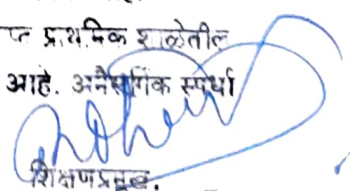 प्राथमिक शाळेतील
आहे. अनैसर्गिक स्पर्धा
शिक्षणप्रमुख.